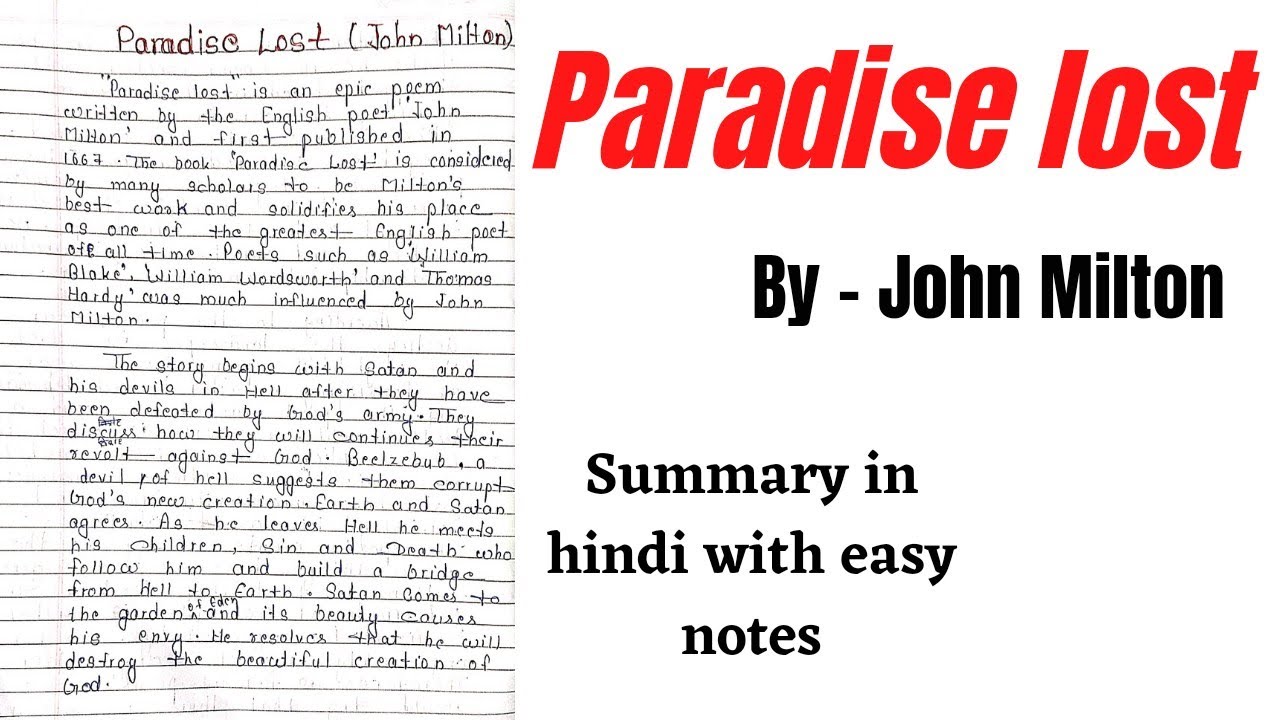 Paradise Lost (John Milton)
"Paradise lost" is an epic poem
written by the English poet 'John
Milton' and first published in
1667. The book 'Paradise Lost' is considered
by many scholars to be Milton's
best work and solidifies his place
as one of the greatest English poet
off all time. Poets such as 'William
Blake', 'William Wordsworth' and Thomas
Hardy' was much influenced by John
Milton.
The story begins with Satan and
his devils in Hell after they have
been defeated by God's army. They
discuss how they will continues their
revolt against God. Beelzebub, a
devil of hell suggests them corrupt
God's new creation, Earth and Satan
agrees. As he leaves Hell he meets
his children, Sin and Death who
follow him and build a bridge
from Hell to Earth. Satan comes to
the garden of Eden and its beauty causes
his envy. He resolves that he will
destroy the beautiful creation of
God.
Paradise lost
By - John Milton
Summary in
hindi with easy
notes